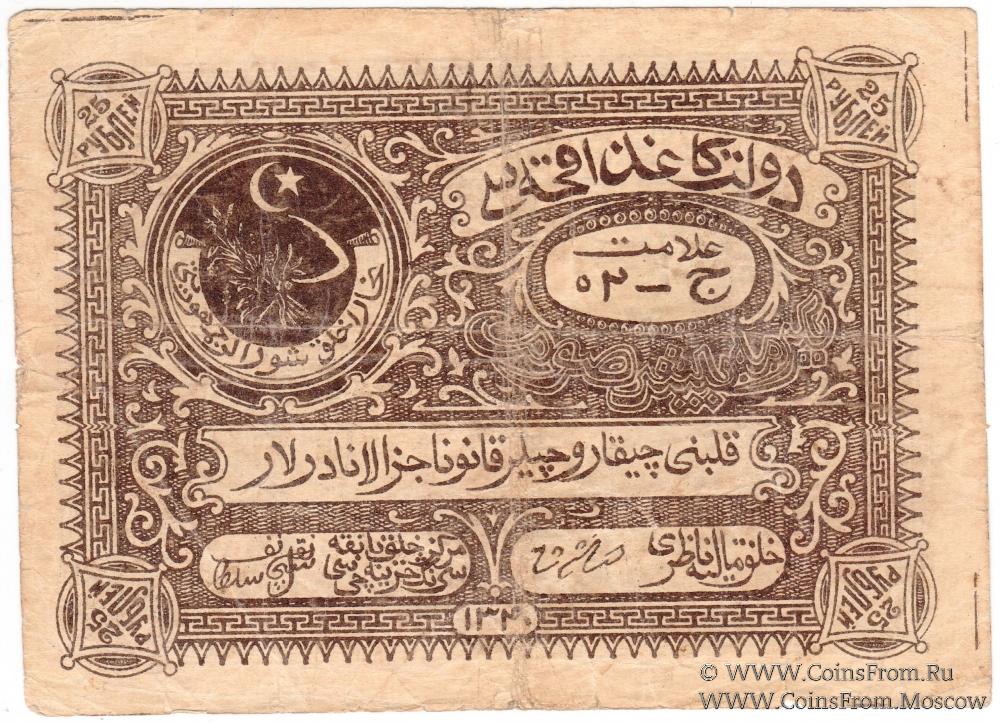 25 РУБЛЕЙ
25 РУБЛЕЙ
دولت كاغذ اقچه سی
علامت
ج — ۵۲
خلق شورالر جمهوریتی
قلبنی چیقاروچیلر قانونا جزالانادرلار
خلق مالیه ناظری
مرکزی خلق بانقه سی نڭ خزینه چی سی
۱۳۴۰
25 РУБЛЕЙ
25 РУБЛЕЙ
© WWW.CoinsFrom.Ru
WWW.CoinsFrom.Moscow